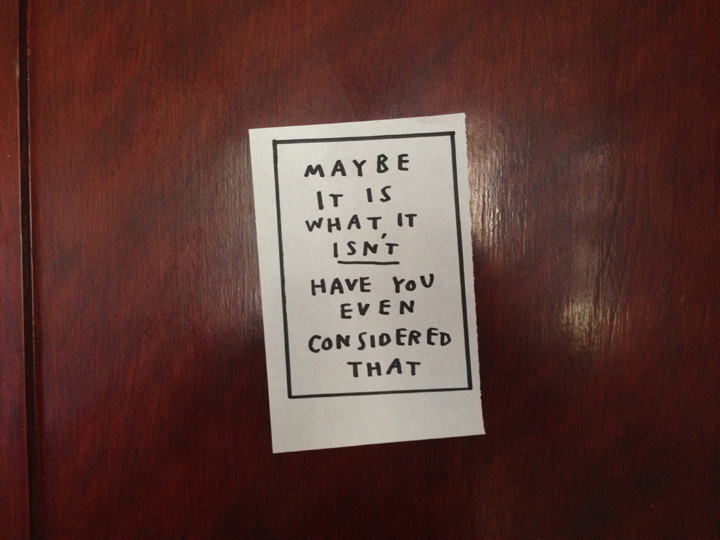 MAYBE
IT IS
WHAT IT
ISN'T
HAVE YOU
EVEN
CONSIDERED
THAT